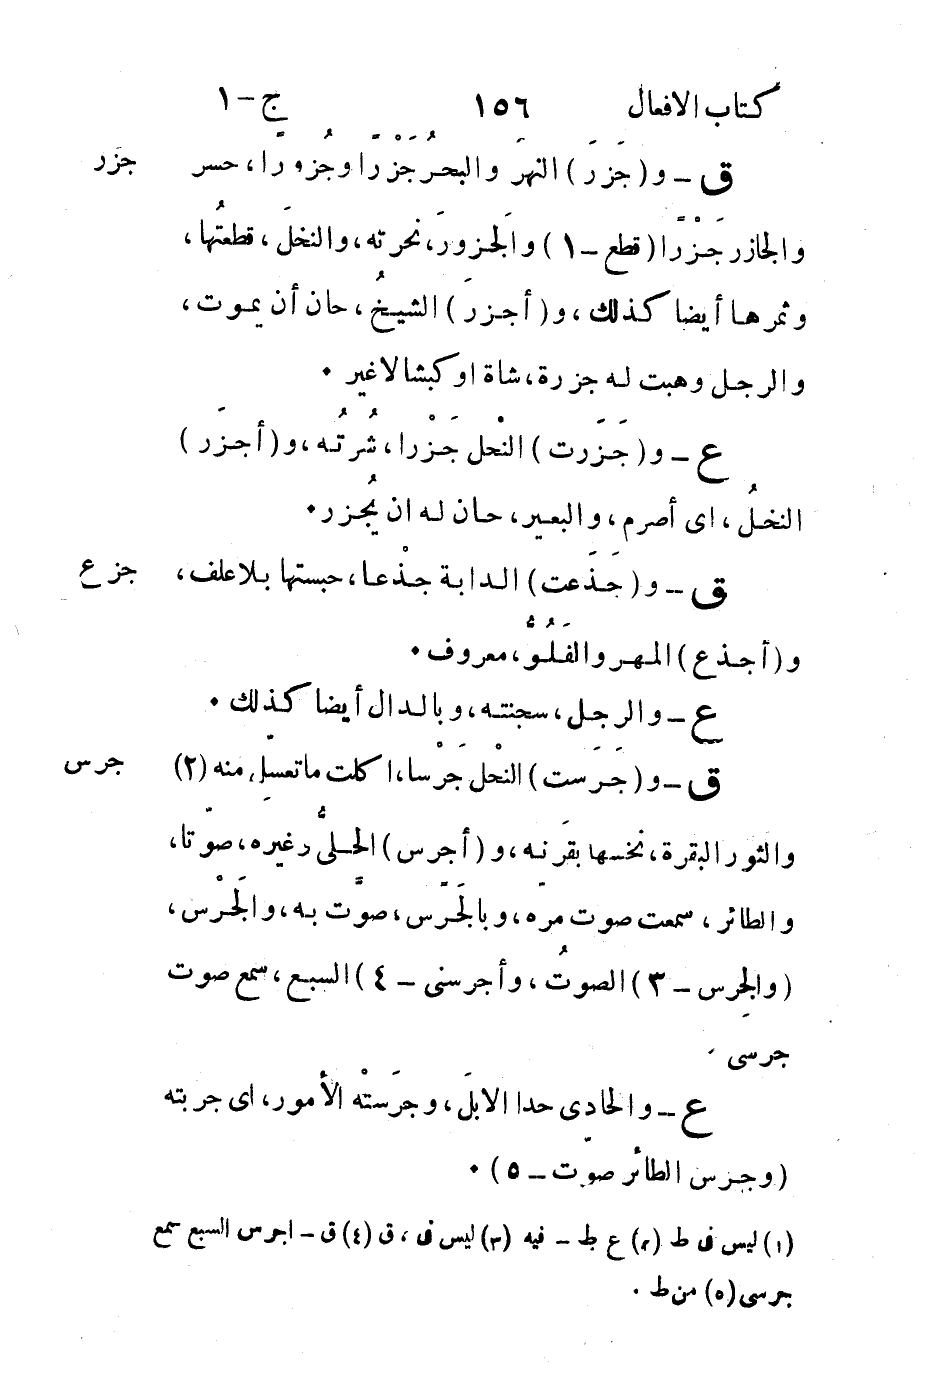 كتاب الافعال ١٥٦ ج-١
ق - و (جَزَرَ) النهرَ والبحرُ جَزْرًا وجُزورًا، حسر جزر
والجازر جَزْرًا (قطع - ١) والجزورَ، نحرته، والنخلَ، قطعتُها،
وثمرها أيضا كذلك، و(أجزرَ) الشيخُ، حان أن يموت،
والرجل وهبت له جزرة، شاة اوكبشا لاغير ٠
ع - و (جَزَرت) النحْل جَزْرا، شُرتُه، و(أجزَر)
النخلُ، اى أصرم، والبعير، حان له ان يُجزر ٠
ق - و (جَذَعت) الدابة جذْعا، حبستها بلاعلف، جزع
و(أجذع) المهر والفَلُوُّ، معروف ٠
ع - والرجل، سجنته، وبالدال أيضا كذلك ٠
ق - و (جَرَست) النحْل جَرْسا، اكلت ماتعسّل منه (٢) جرس
والثور البقرة، نخسها بقرَنه، و (أجرس) الحلىُّ رغيره، صوّتا،
والطائر، سمعت صوت مرّه، وبالجَرَس، صوَّت به، والجَرْس،
(والجِرس - ٣) الصوتُ، وأجرسنى - ٤) السبع، سمع صوت
جرسى
ع - والحادى حدا الابلَ، وجرَستْه الأمور، اى جربته
(وجرس الطائر صوّت - ٥) ٠
(١) ليس فى ط (٢) ع ط - فيه (٣) ليس فى، ق (٤) ق - اجرس السبع سمع
جرسى (٥) من ط ٠